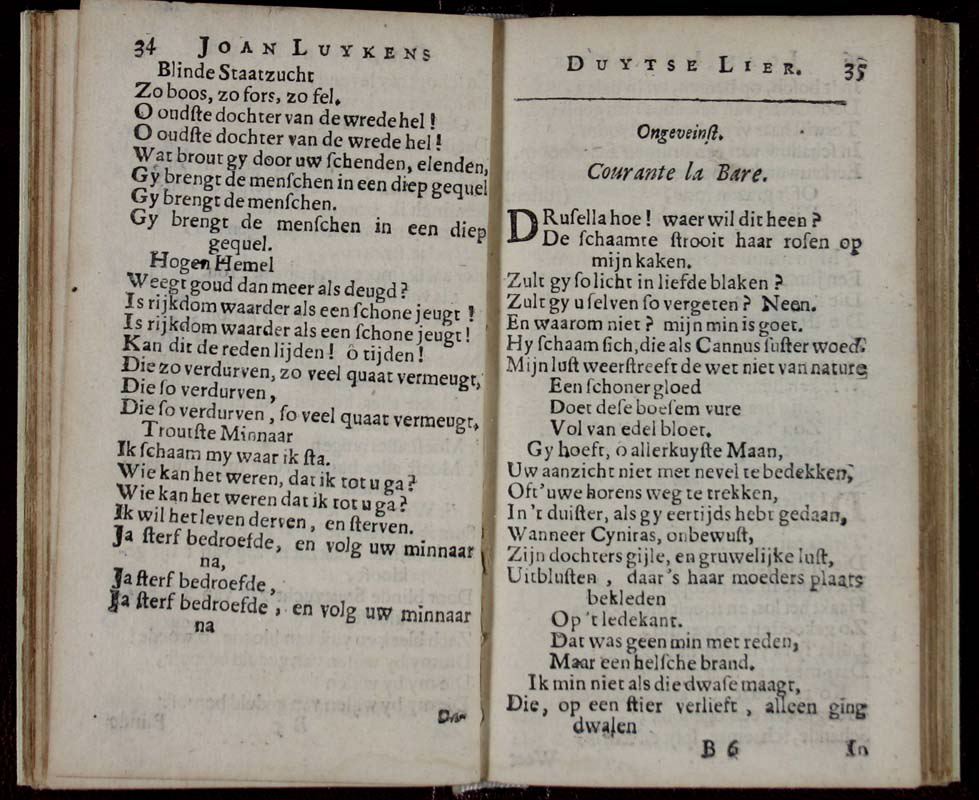 34 JOAN LUYKENS
Blinde Staatzucht
Zo boos, zo fors, zo fel.
O oudſte dochter van de wrede hel!
O oudſte dochter van de wrede hel!
Wat brout gy door uw ſchenden, elenden,
Gy brengt de menſchen in een diep gequel
Gy brengt de menſchen.
Gy brengt de menſchen in een diep
gequel.
Hogen Hemel
Weegt goud dan meer als deugd?
Is rijkdom waarder als een ſchone jeugt!
Is rijkdom waarder als een ſchone jeugt!
Kan dit de reden lijden! ô tijden!
Die zo verdurven, zo veel quaat vermeugt,
Die ſo verdurven,
Die ſo verdurven, ſo veel quaat vermeugt,
Troutſte Minnaar
Ik ſchaam my waar ik ſta.
Wie kan het weren, dat ik tot u ga?
Wie kan het weren dat ik tot u ga?
Ik wil het leven derven, en ſterven.
Ja ſterf bedroefde, en volg uw minnaar
na,
Ja ſterf bedroefde,
Ja ſterf bedroefde, en volg uw minnaar
na
DUYTSE LIER. 35
Ongeveinſt.
Courante la Bare.
DRuſella hoe! waer wil dit heen?
De ſchaamte ſtrooit haar roſen op
mijn kaken.
Zult gy ſo licht in liefde blaken?
Zult gy u ſelven ſo vergeten? Neen.
En waarom niet? mijn min is goet.
Hy ſchaam ſich, die als Cannus ſuſter woed.
Mijn luſt weerſtreeft de wet niet van nature
Een ſchoner gloed
Doet deſe boeſem vure
Vol van edel bloet.
Gy hoeft, ô allerkuyſte Maan,
Uw aanzicht niet met nevel te bedekken,
Oft' uwe horens weg te trekken,
In 't duiſter, als gy eertijds hebt gedaan,
Wanneer Cyniras, onbewuſt,
Zijn dochters gijle, en gruwelijke luſt,
Uitbluſten, daar 's haar moeders plaats
bekleden
Op 't ledekant.
Dat was geen min met reden,
Maar een helſche brand.
Ik min niet als die dwaſe maagt,
Die, op een ſtier verlieft, alleen ging
dwalen
B 6 In